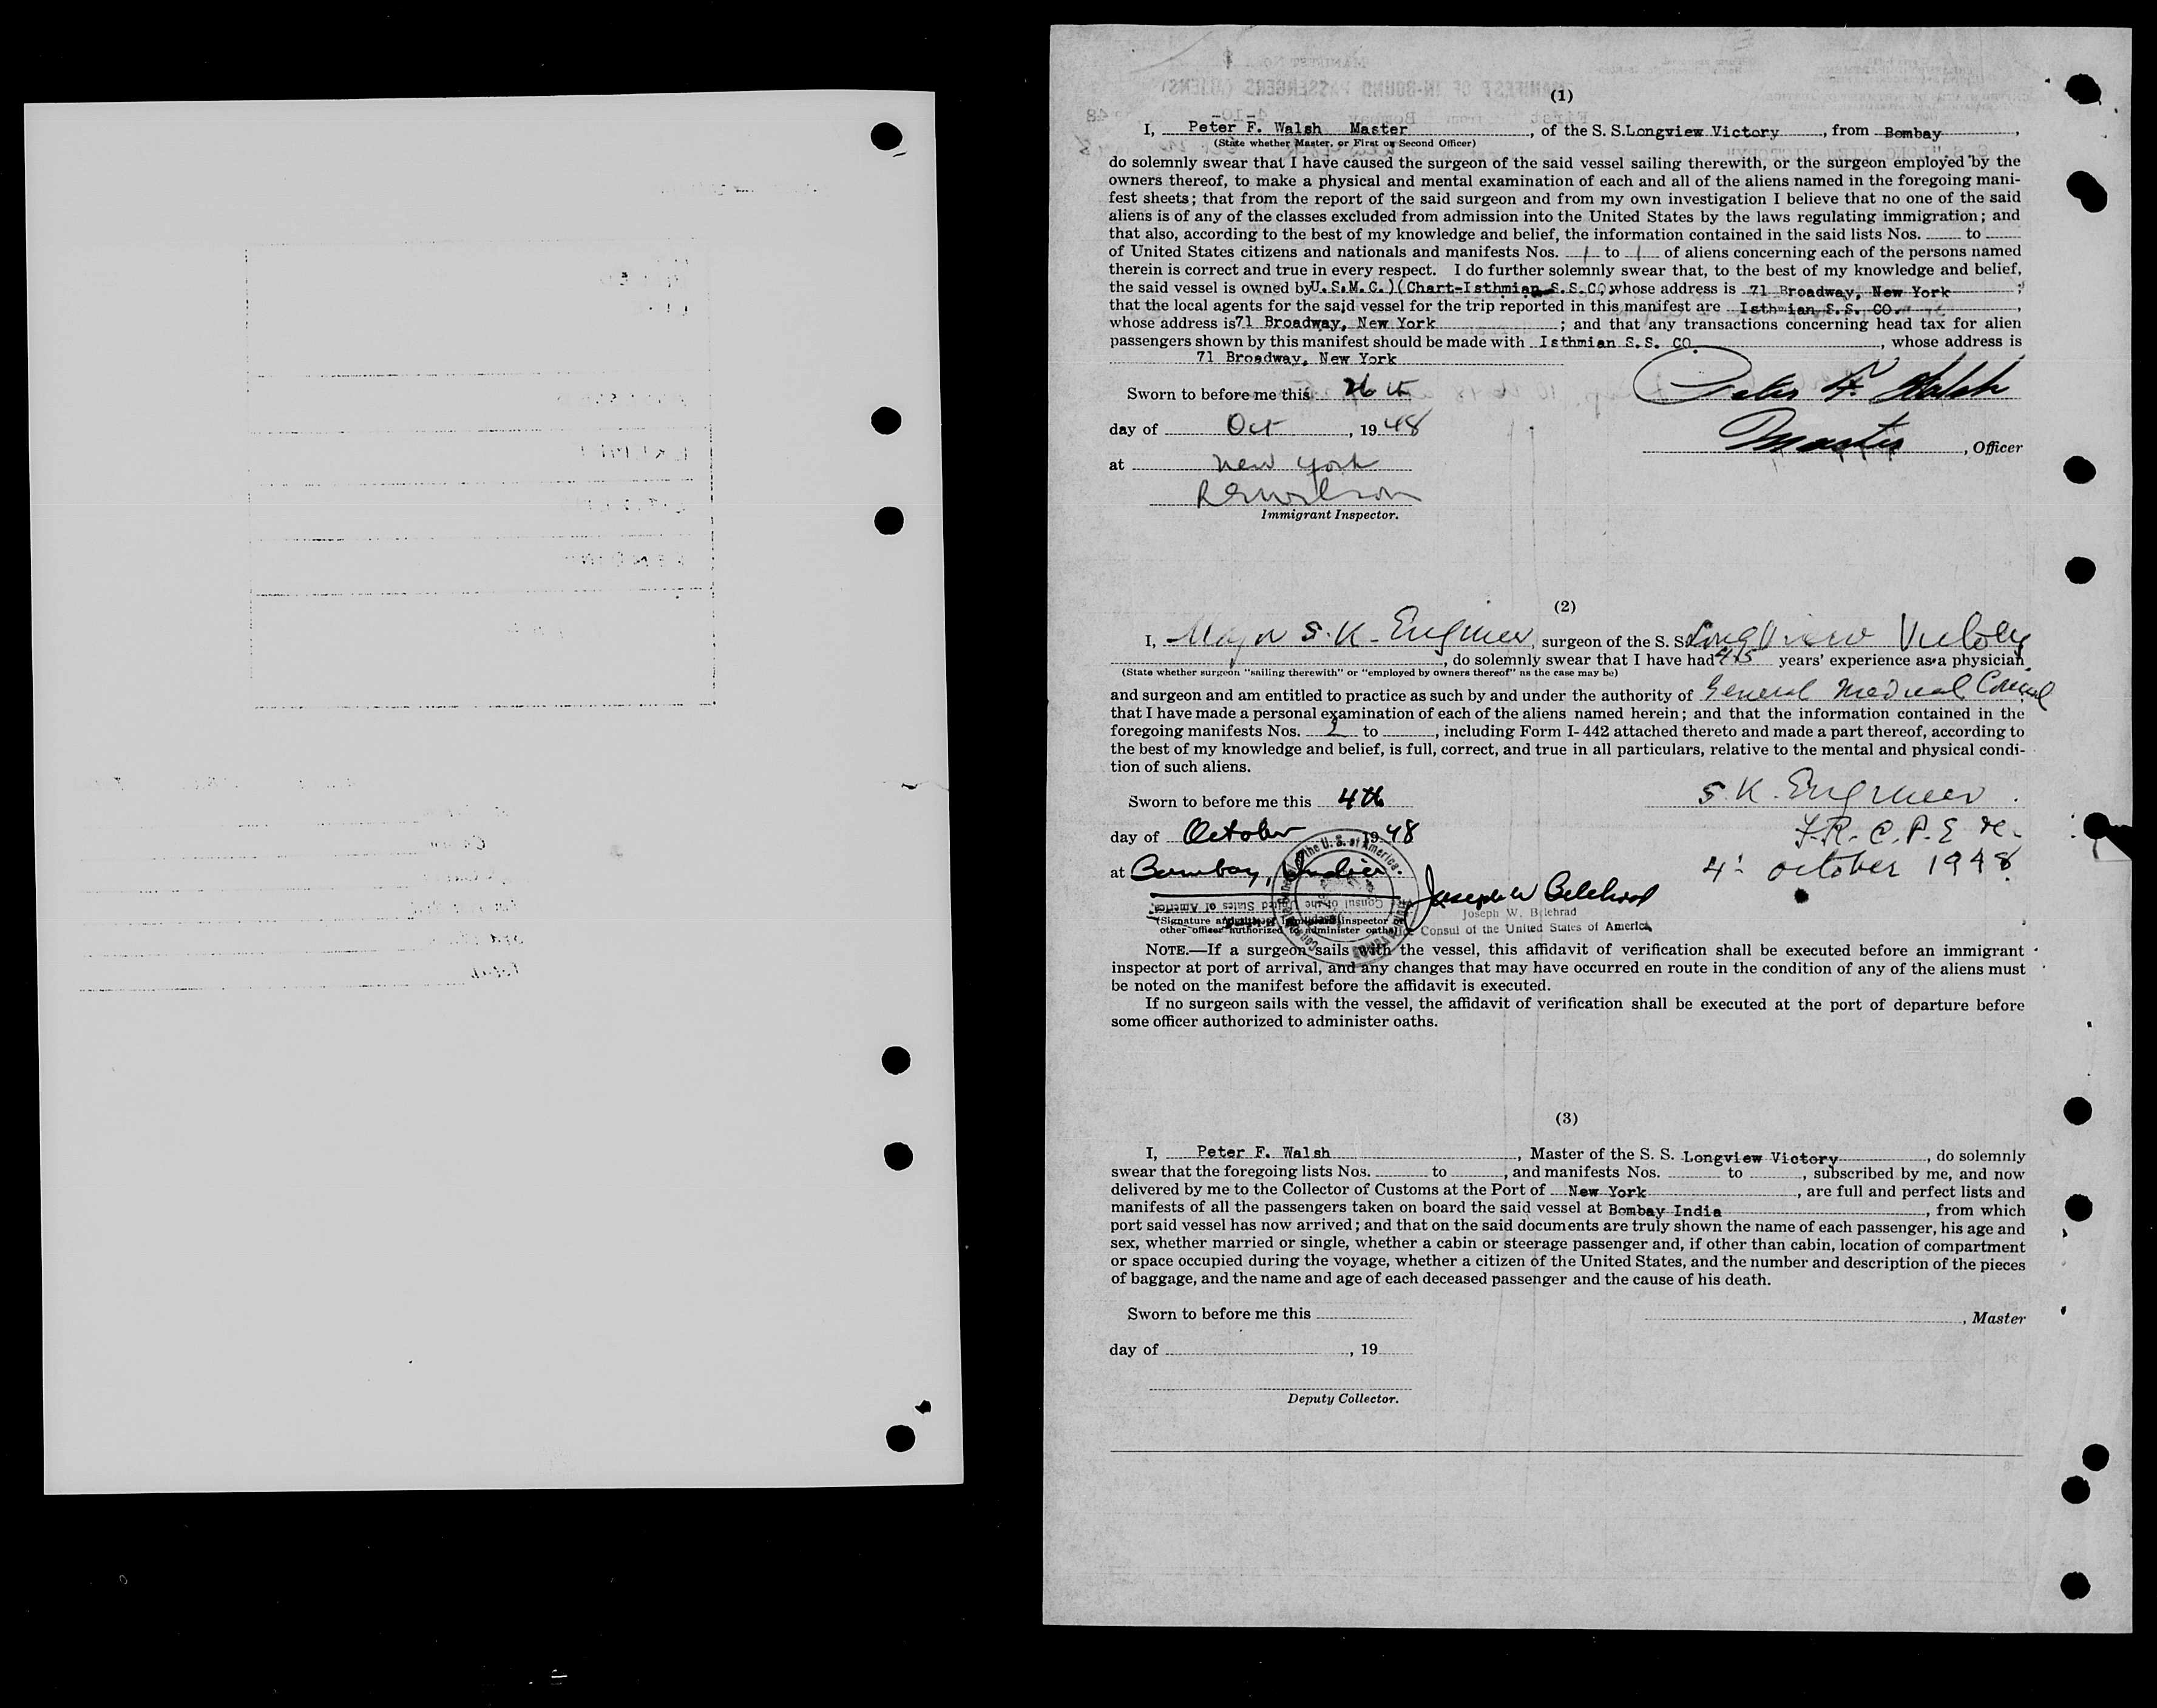 (1)
I, Peter F. Walsh Master, of the S. S. Longview Victory, from Bombay,
(State whether Master, or First or Second Officer)
do solemnly swear that I have caused the surgeon of the said vessel sailing therewith, or the surgeon employed by the
owners thereof, to make a physical and mental examination of each and all of the aliens named in the foregoing mani-
fest sheets; that from the report of the said surgeon and from my own investigation I believe that no one of the said
aliens is of any of the classes excluded from admission into the United States by the laws regulating immigration; and
that also, according to the best of my knowledge and belief, the information contained in the said lists Nos. to
of United States citizens and nationals and manifests Nos. 1 to 1 of aliens concerning each of the persons named
therein is correct and true in every respect. I do further solemnly swear that, to the best of my knowledge and belief,
the said vessel is owned by U.S.M.C.)(Chart-Isthmian S.S.CO, whose address is 71 Broadway, New York;
that the local agents for the said vessel for the trip reported in this manifest are Isthmian S.S. CO.,
whose address is 71 Broadway, New York; and that any transactions concerning head tax for alien
passengers shown by this manifest should be made with Isthmian S.S. CO, whose address is
71 Broadway, New York
Sworn to before me this 26th
Peter F. Walsh
day of Oct, 1948
Master, Officer
at New York
Immigrant Inspector.
(2)
I, Major S. K. Engineer, surgeon of the S. S. Longview Victory
, do solemnly swear that I have had 45 years' experience as a physician
(State whether surgeon "sailing therewith" or "employed by owners thereof" as the case may be)
and surgeon and am entitled to practice as such by and under the authority of General Medical Council
that I have made a personal examination of each of the aliens named herein; and that the information contained in the
foregoing manifests Nos. to , including Form I-442 attached thereto and made a part thereof, according to
the best of my knowledge and belief, is full, correct, and true in all particulars, relative to the mental and physical condi-
tion of such aliens.
Sworn to before me this 4th
S. K. Engineer.
day of October 1948
F.R.C.P.E
at Bombay, India.
4 October 1948
Joseph W Belehrad
Consul of the United States of America
Joseph W. Belehrad
(Signature and title of immigrant inspector or
other officer authorized to administer oaths)
Consul of the United States of America
NOTE.—If a surgeon sails with the vessel, this affidavit of verification shall be executed before an immigrant
inspector at port of arrival, and any changes that may have occurred en route in the condition of any of the aliens must
be noted on the manifest before the affidavit is executed.
If no surgeon sails with the vessel, the affidavit of verification shall be executed at the port of departure before
some officer authorized to administer oaths.
(3)
I, Peter F. Walsh, Master of the S. S. Longview Victory, do solemnly
swear that the foregoing lists Nos. to , and manifests Nos. to , subscribed by me, and now
delivered by me to the Collector of Customs at the Port of New York, are full and perfect lists and
manifests of all the passengers taken on board the said vessel at Bombay India, from which
port said vessel has now arrived; and that on the said documents are truly shown the name of each passenger, his age and
sex, whether married or single, whether a cabin or steerage passenger and, if other than cabin, location of compartment
or space occupied during the voyage, whether a citizen of the United States, and the number and description of the pieces
of baggage, and the name and age of each deceased passenger and the cause of his death.
Sworn to before me this
, Master
day of , 19
Deputy Collector.